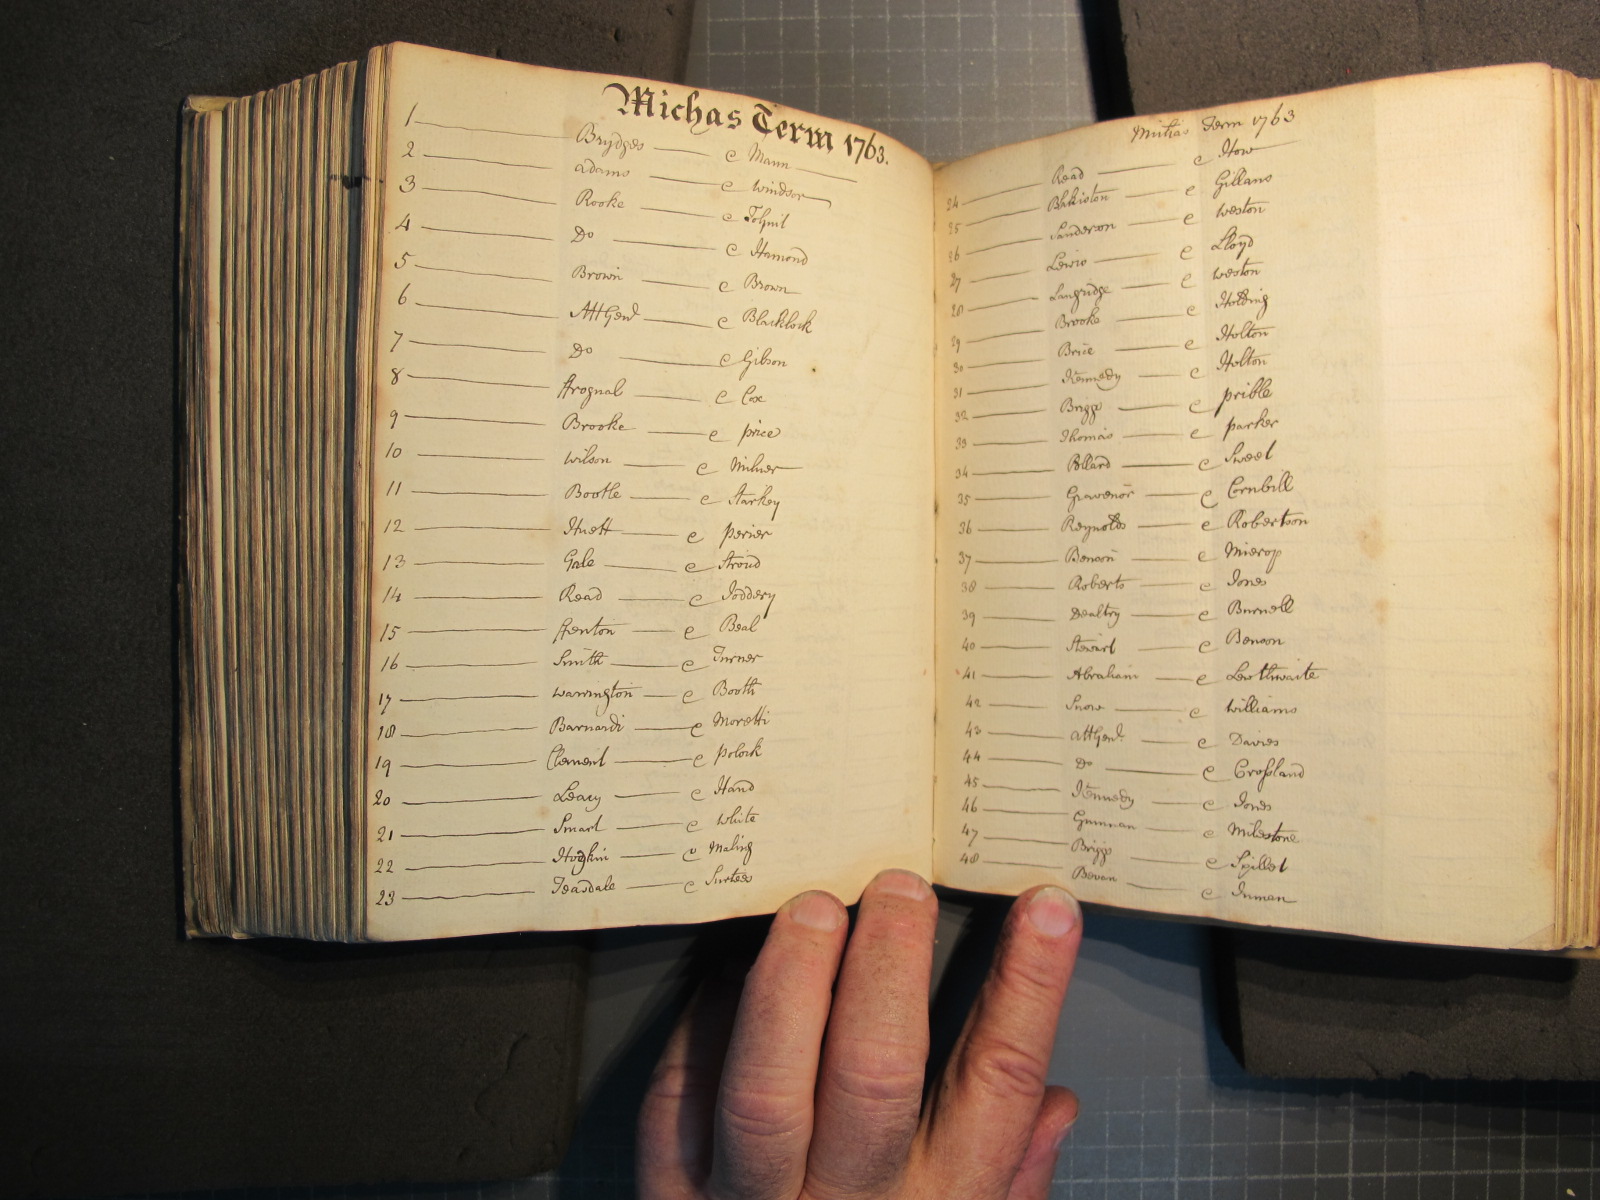 Michas Term 1763.
1 Brydges e Mann
2 Adams e Windsor
3 Rooke e
4 Do e Hamond
5 Brown e Brown
6 Att Genl e Blacklock
7 Do e Gibson
8 ffrognal e Cox
9 Brooke e price
10 Wilson e Milner
11 Bootle e Starkey
12 Huett e perier
13 Gale e Stroud
14 Read e Joddery
15 ffenton e Beal
16 Smith e Turner
17 Warrington e Booth
18 Barnardi e Moretti
19 Clement e polock
20 Leacy e Hand
21 Smart e White
22 Hodgkin e Maling
23 Teasdale e Surtees
Michas Term 1763
24 Read e How
25 Blakiston e Gillans
26 Sanderson e Weston
27 Lewis e Lloyd
28 Langridge e Weston
29 Brooke e Holding
30 Brice e Holton
31 Kennedy e Holton
32 Briggs e pribble
33 Thomas e parker
34 Pollard e Sweet
35 Gravenor e Cornhill
36 Reynolds e Robertson
37 Benson e Mierop
38 Roberts e Jones
39 Dealtry e Burnell
40 Stewart e Benson
41 Abraham e Lewthwaite
42 Snow e Williams
43 Att Genl. e Davies
44 Do e Crossland
45 Kennedy e Jones
46 Gunman e Milestone
47 Briggs e Spillest
48 Bevan e Inman